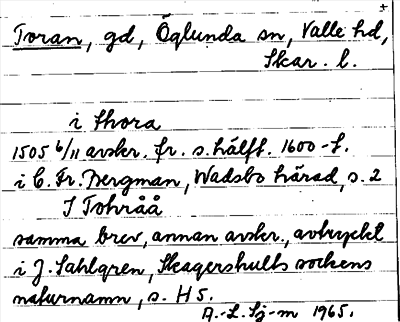 Toran, gd, Öglunda sn, Valle hd,
Skar. l.
i thora
1505 6/11 avskr. fr. s. hälft. 1600-t.
i C. Fr. Bergman, Wadsbo härad, s. 2
I Tohråå
samma brev, annan avskr., avtryckt
i J. Sahlgren, Skagershults sockens
naturnamn, s. H5.
A.-L. Sj-m 1965.